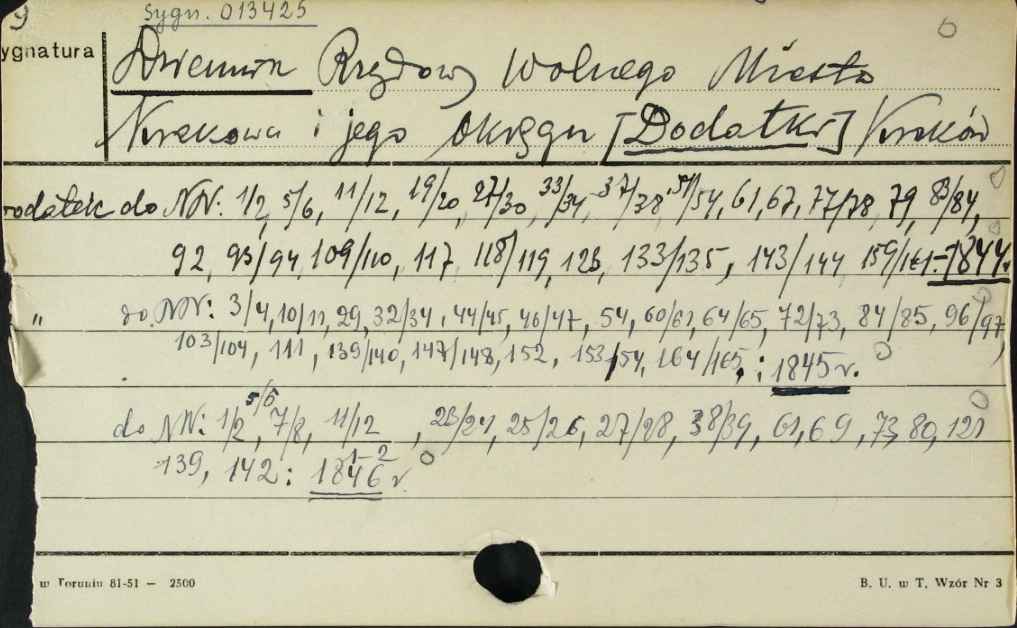 9 Sygn. 013425
ygnatura Dziennik Rządowy Wolnego Miasta
Krakowa i jego Okręgu [Dodatki] Kraków
odatek do NN: 1/2, 5/6, 11/12, 19/20, 27/30, 33/34, 37/38, 51/54, 61, 67, 77/78, 79, 83/84,
92, 93/94, 109/110, 117, 118/119, 123, 133/135, 143/144, 159/161.-1844.
" do NN: 3/4, 10/11, 29, 32/34, 44/45, 46/47, 54, 60/61, 64/65, 72/73, 84/85, 96/97,
103/104, 111, 139/140, 147/148, 152, 153/54, 164/165, : 1845 r.
do NN: 1/2, 5/6, 7/8, 11/12, 23/24, 25/26, 27/28, 38/39, 61, 69, 73, 80, 121
139, 142 : 1846 r 1-2
w Toruniu 81-51 — 2500 B. U. w T. Wzór Nr 3